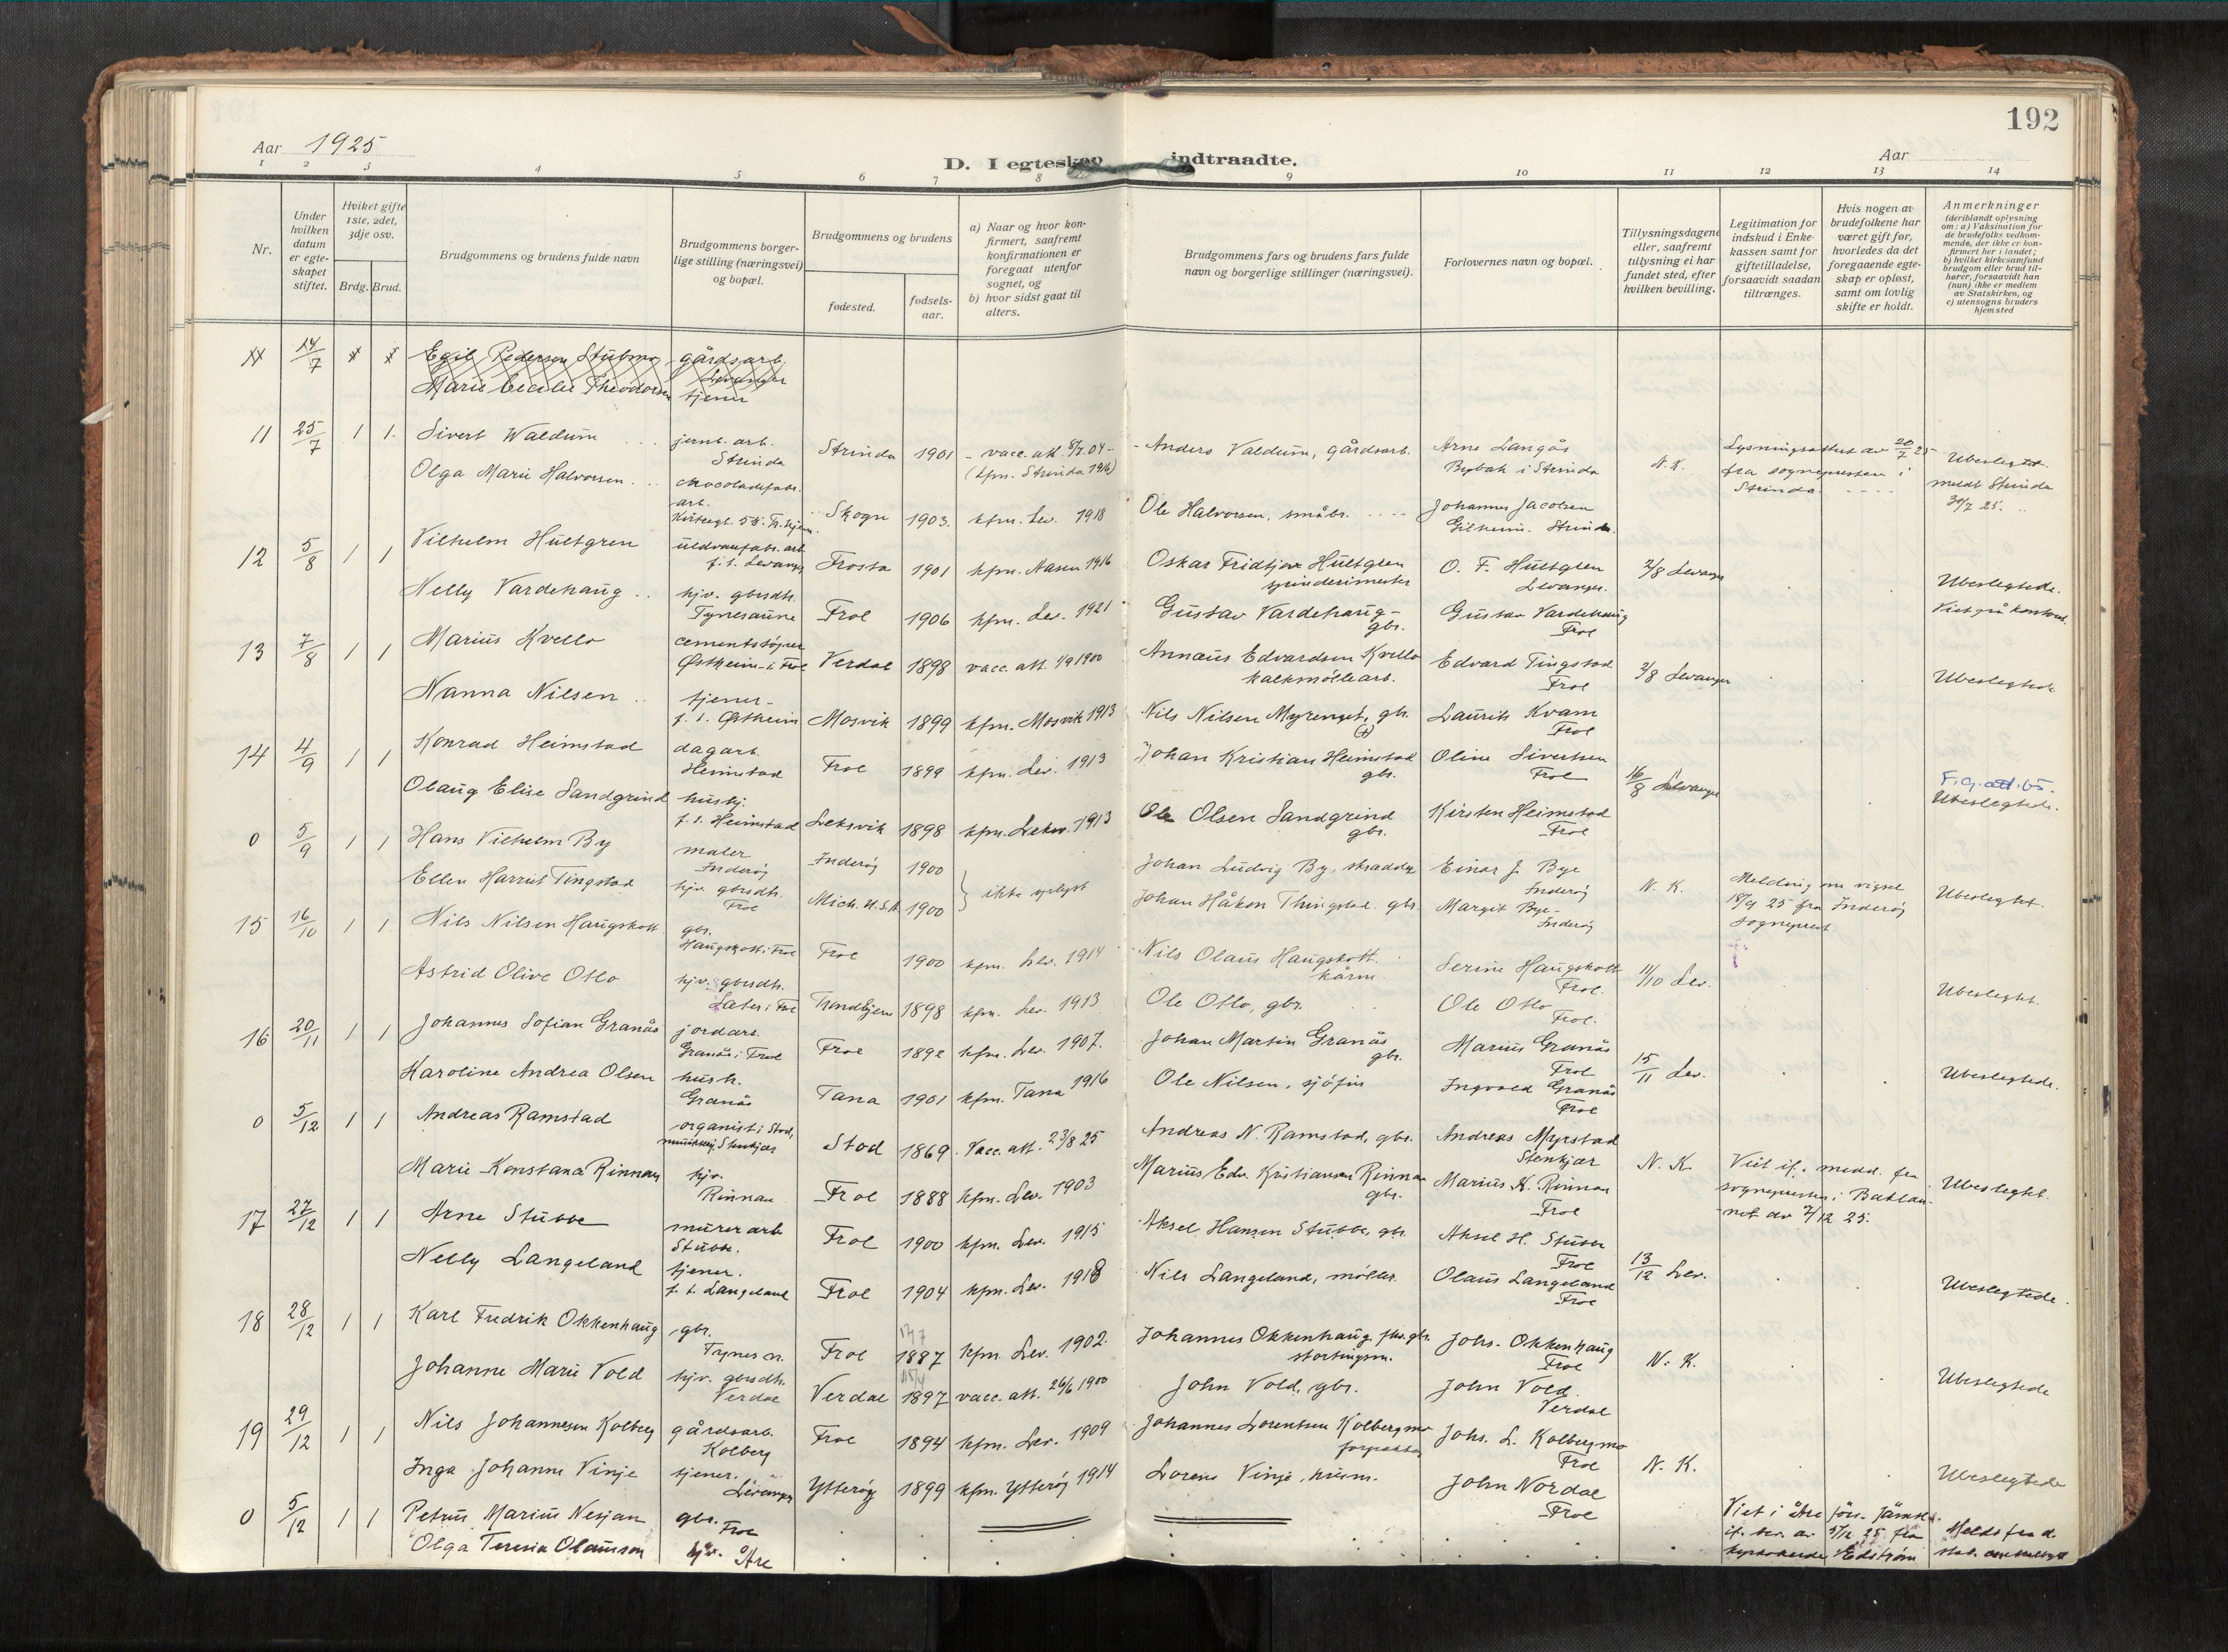 192
Aar 1925
D. I egteskap indtraadte.
Aar
1 2 3 4 5 6 7 8 9 10 11 12 13 14
Nr.
Under hvilken datum er egteskapet stiftet.
Hviket gifte 1ste, 2det, 3dje osv.
Brdg. Brud.
Brudgommens og brudens fulde navn
Brudgommens borgerlige stilling (næringsvei) og bopæl.
Brudgommens og brudens
fødested.
fødselsaar.
a) Naar og hvor konfirmert, saafremt konfirmationen er foregaat utenfor sognet, og
b) hvor sidst gaat til alters.
Brudgommens fars og brudens fars fulde navn og borgerlige stillinger (næringsvei).
Forlovernes navn og bopæl.
Tillysningsdagene eller, saafremt tillysning ei har fundet sted, efter hvilken bevilling.
Legitimation for indskud i Enkekassen samt for giftetilladelse, forsaavidt saadan tiltrænges.
Hvis nogen av brudefolkene har været gift før, hvorledes da det foregaaende egteskap er opløst, samt om lovlig skifte er holdt.
Anmerkninger (deriblandt oplysning om: a) Vaksination for de brudefolks vedkommende, der ikke er konfirmert her i landet; b) hvilket kirkesamfund brudgom eller brud tilhører, forsaavidt han (hun) ikke er medlem av Statskirken, og c) utensogns bruders hjemsted
14/7 Egil Pedersen gårdsarb. Levanger
Marie Cecilie Theodorsen tjener
11 25/7 1 1. Sivert Waldum jernb. arb. Strinda Strinda 1901 - vacc. att. 8/7.04 - (kfm. Strinda 1916) Anders Valdum, gårdsarb. Arne Langås i Strinda N. K. Lysningsattest av 20/7 25 fra sognepresten i Strinda. Ubeslegtet. meldt Strinda
Olga Marie Halvorsen chocoladefabr. arb. Skogn 1903. kfm. Lev. 1918 Ole Halvorsen, småbr. Johannes Jacobsen Strinda.
12 5/8 1 1 Vilhelm Hultgren uldvarefabr. arb. f. t. Levanger Frosta 1901 kfm. Nasen 1916 Oskar Fridtjov Hultgren spinderimester O. F. Hultgren Levanger. 2/8 Levanger Ubeslegtede. Viet på kontoret.
Nelly Vardehaug hjv. gbrsdtr. Tynesaune Frol 1906 kfm. Lev. 1921 Gustav Vardehaug - gbr. Gustav Vardehaug Frol
13 7/8 1 1 Marius Kvello cementstøper Østheim i Frol Verdal 1898 vacc. att. 1/9 1900 Annæus Edvardsen Kvello kalkmöllearb. Edvard Tingstad Frol 2/8 Levanger Ubeslegtede
Nanna Nilsen tjener - f. t. Østheim Mosvik 1899 kfm. Mosvik 1913 Nils Nilsen Myrenget, gbr. Laurits Kvam Frol
14 4/9 1 1 Konrad Heimstad dagarb. Heimstad Frol 1899 kfm. Lev. 1913 Johan Kristian Heimstad gbr. Oline Sivertsen Frol 16/8 Levanger Ubeslegtede.
Olaug Elise Sandgrind hushj. f. t. Heimstad Leksvik 1898 kfm. Leksv. 1913 Ole Olsen Sandgrind gbr. Kirsten Heimstad Frol
0 5/9 1 1 Hans Vilhelm By maler Inderøy Inderøy 1900 ikke oplyst Johan Ludvig By, skrædder Einar J. Bye Inderøy N. K. Melding om vigsel 18/9 25 fra Inderøy sogneprest Ubeslegtet.
Ellen Harriet Tingstad hjv. gbrsdtr. Frol Mich. U.S.A. 1900 Johan Håkon Thingstad. gbr. Margit Bye - Inderøy
15 16/10 1 1 Nils Nilsen Haugskott gbr. Haugskott i Frol Frol 1900 kfm. Lev. 1914 Nils Olaus Haugskott. kårm. Serine Haugskott Frol. 11/10 Lev. Ubeslegtet.
Astrid Olive Otlo hjv. gbrsdtr. i Frol Trondhjem 1898 kfm. Lev. 1913 Ole Otlo, gbr. Ole Otlo Frol.
16 20/11 1 1 Johannes Sofian Granås jordarb. Granås i Frol Frol 1892 kfm. Lev. 1907. Johan Martin Granås gbr. Marius Granås Frol 15/11 Lev. Ubeslegtede.
Karoline Andrea Olsen hush. Granås Tana 1901 kfm. Tana 1916 Ole Nilsen, sjöfin Ingvald Granås Frol
0 5/12 1 1 Andreas Ramstad organist i Stod, Stenkjær Stod 1869. Vacc. att. 23/8 25 Andreas N. Ramstad, gbr. Andreas Myrstad Stenkjær N. K. Viet if. medd. fra sognepresten i Baklan- net av 7/12 25. Ubeslegtet.
Marie Konstanse Rinnan hjv. Rinnan Frol 1888 kfm. Lev. 1903 Marius Edv. Kristiansen Rinnan gbr. Marius K. Rinnan Frol
17 27/12 1 1 Arne Stubbe murerarb. Stubbe. Frol 1900 kfm. Lev. 1915 Aksel Hansen Stubbe, gbr. Aksel H. Stubbe Frol 13/12 Lev. Ubeslegtede.
Nelly Langeland tjener. f. t. Langeland Frol 1904 kfm. Lev. 1918 Nils Langeland, möller. Olaus Langeland Frol
18 28/12 1 1 Karl Fredrik Okkenhaug gbr. Tynes n. Frol 1887 kfm. Lev. 1902. Johannes Okkenhaug, fhv. gbr. stortingsm. Johs. Okkenhaug Frol N. K. Ubeslegtede
Johanne Marie Vold hjv. gbrsdtr. Verdal Verdal 1897 vacc. att. 26/6 1900 John Vold, gbr. John Vold. Verdal
19 29/12 1 1 Nils Johannesen Kolberg gårdsarb. Kolberg Frol 1894 kfm. Lev. 1909 Johannes Lorentsen Kolbergmo forpakter Johs. L. Kolbergmo Frol N. K. Ubeslegtede
Inga Johanne Vinje tjener. Levanger Ytterøy 1899 kfm. Ytterøy 1914 Lorens Vinje, husm. John Nordal Frol
0 5/12 1 1 Petrus Marius Nesjan gbr. Frol Viet i Åre förs. Jämtl. if. bev. av 5/12 25 fra kyrkoherde Edström Meldt fra d. stat.
Olga Teresia Olausson hjv. Åre